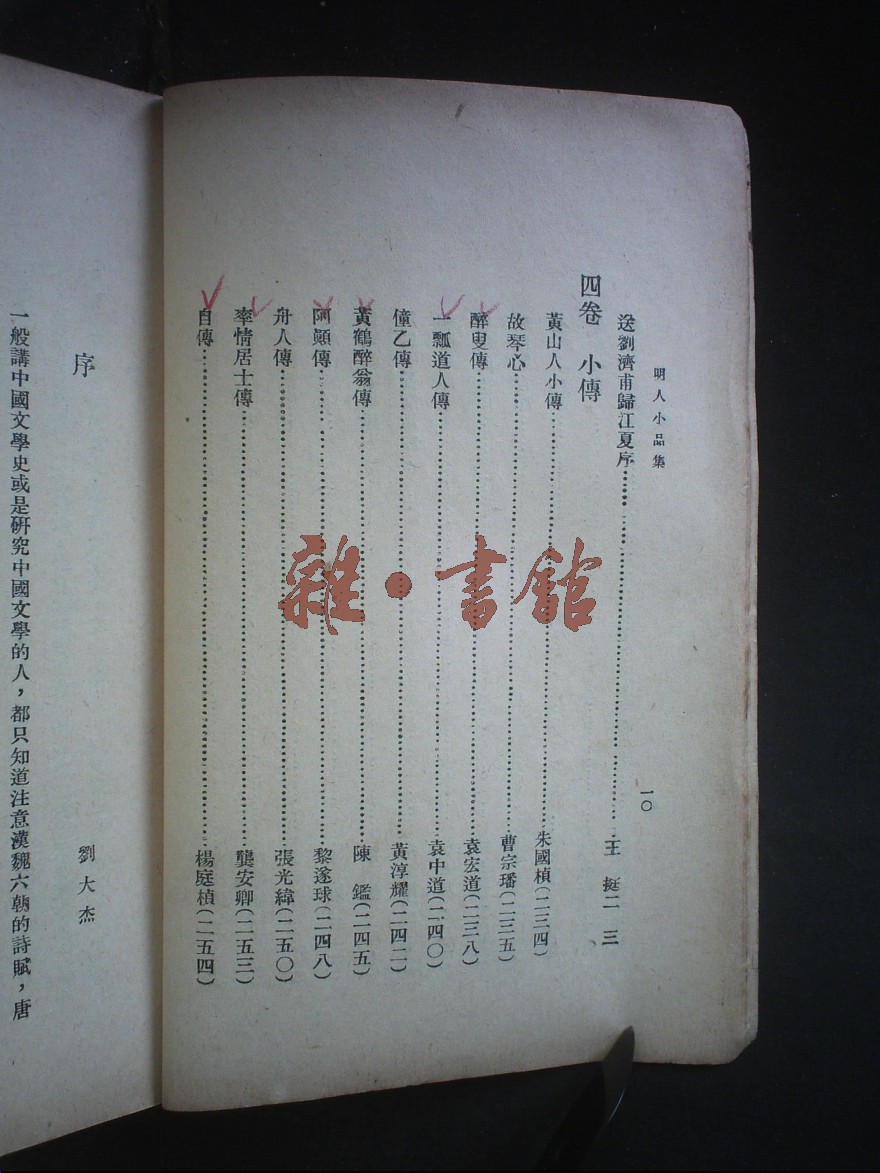 明人小品集
一〇
送劉濟甫歸江夏序……王 挺二 三
四卷 小傳
黃山人小傳……朱國楨(二三四)
故琴心……曹宗璠(二三五)
醉叟傳……袁宏道(二三八)
一瓢道人傳……袁中道(二四〇)
僮乙傳……黃淳耀(二四二)
黃鶴醉翁傳……陳 鑑(二四五)
阿顚傳……黎遂球(二四八)
舟人傳……張光緯(二五〇)
率情居士傳……龔安卿(二五三)
自傳……楊庭楨(二五四)
序
劉大杰
一般講中國文學史或是研究中國文學的人，都只知道注意漢魏六朝的詩賦，唐
雜·書館